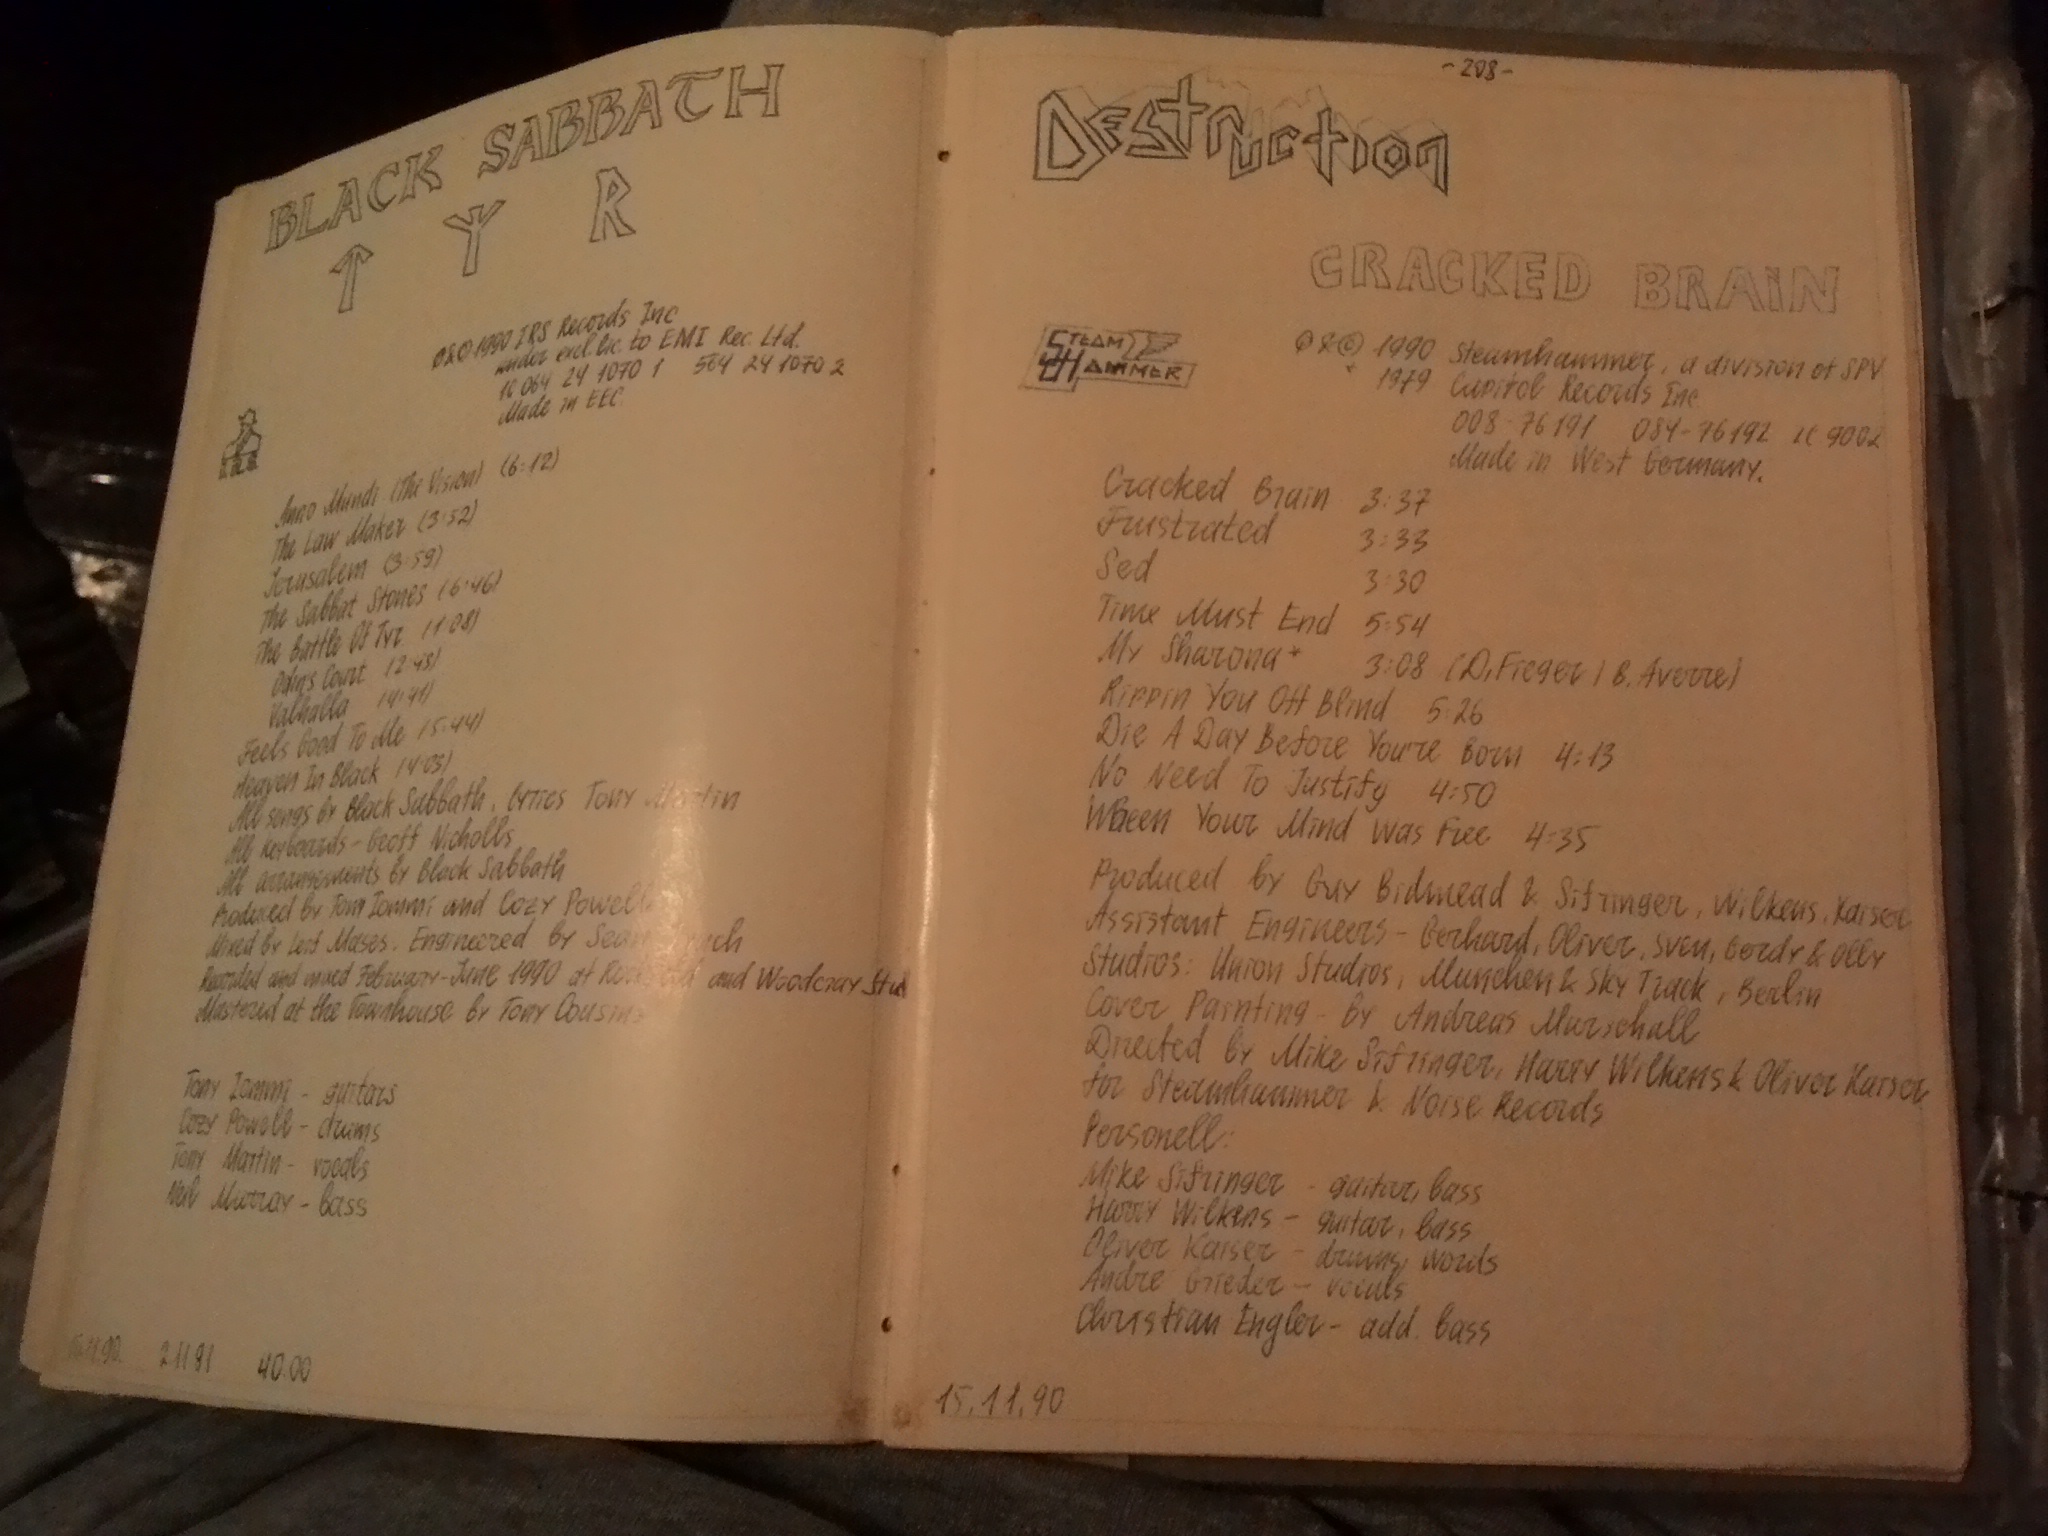 BLACK SABBATH
TYR
℗&© 1990 IRS Records Inc
under excl. lic. to EMI Rec. Ltd.
1C 064 24 1070 1 564 24 1070 2
Made in EEC
Anno Mundi (The Vision) (6:12)
The Law Maker (3:52)
Jerusalem (3:59)
The Sabbat Stones (6:46)
The Battle Of Tyr (1:08)
Odins Court (2:43)
Valhalla (4:41)
Feels Good To Me (5:44)
Heaven In Black (4:03)
All songs by Black Sabbath, Lyrics Tony Martin
All Keyboards - Geoff Nicholls
All arrangements by Black Sabbath
Produced by Tony Iommi and Cozy Powell
Mixed by Leif Mases. Engineered by Sean
Recorded and mixed February-June 1990 at and Woodcray Stud
Mastered at the Townhouse by Tony Cousins
Tony Iommi - guitars
Cozy Powell - drums
Tony Martin - vocals
Neil Murray - bass
2 11 91 40.00
- 208 -
Destruction
CRACKED BRAIN
STEAM HAMMER
℗&© 1990 Steamhammer, a division of SPV
+ 1979 Capitol Records Inc
008-76191 084-76192 LC 9002
Made in West Germany.
Cracked Brain 3:37
Frustrated 3:33
Sed 3:30
Time Must End 5:54
My Sharona* 3:08 (D. Fieger / B. Averre)
Rippin You Off Blind 5:26
Die A Day Before You're Born 4:13
No Need To Justify 4:50
When Your Mind Was Free 4:35
Produced by Guy Bidmead & Sifringer, Wilkens, Kaiser
Assistant Engineers - Gerhard, Oliver, Sven, Gordy & Olly
Studios: Union Studios, Munchen & Sky Track, Berlin
Cover Painting - By Andreas Marschall
Directed by Mike Sifringer, Harry Wilkens & Oliver Kaiser
for Steamhammer & Noise Records
Personell:
Mike Sifringer - guitar, bass
Harry Wilkens - guitar, bass
Oliver Kaiser - drums, words
Andre Grieder - vocals
Christian Engler - add. bass
15.11.90